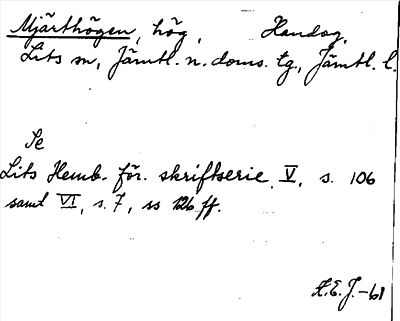 Mjärthögen, hög, Handog,
Lits sn, Jämtl. n. doms. tg., Jämtl. l.
Se
Lits Hemb. för. skriftserie V, s. 106
samt VI, s. 7, ss 126 ff.
A.E.J. -61